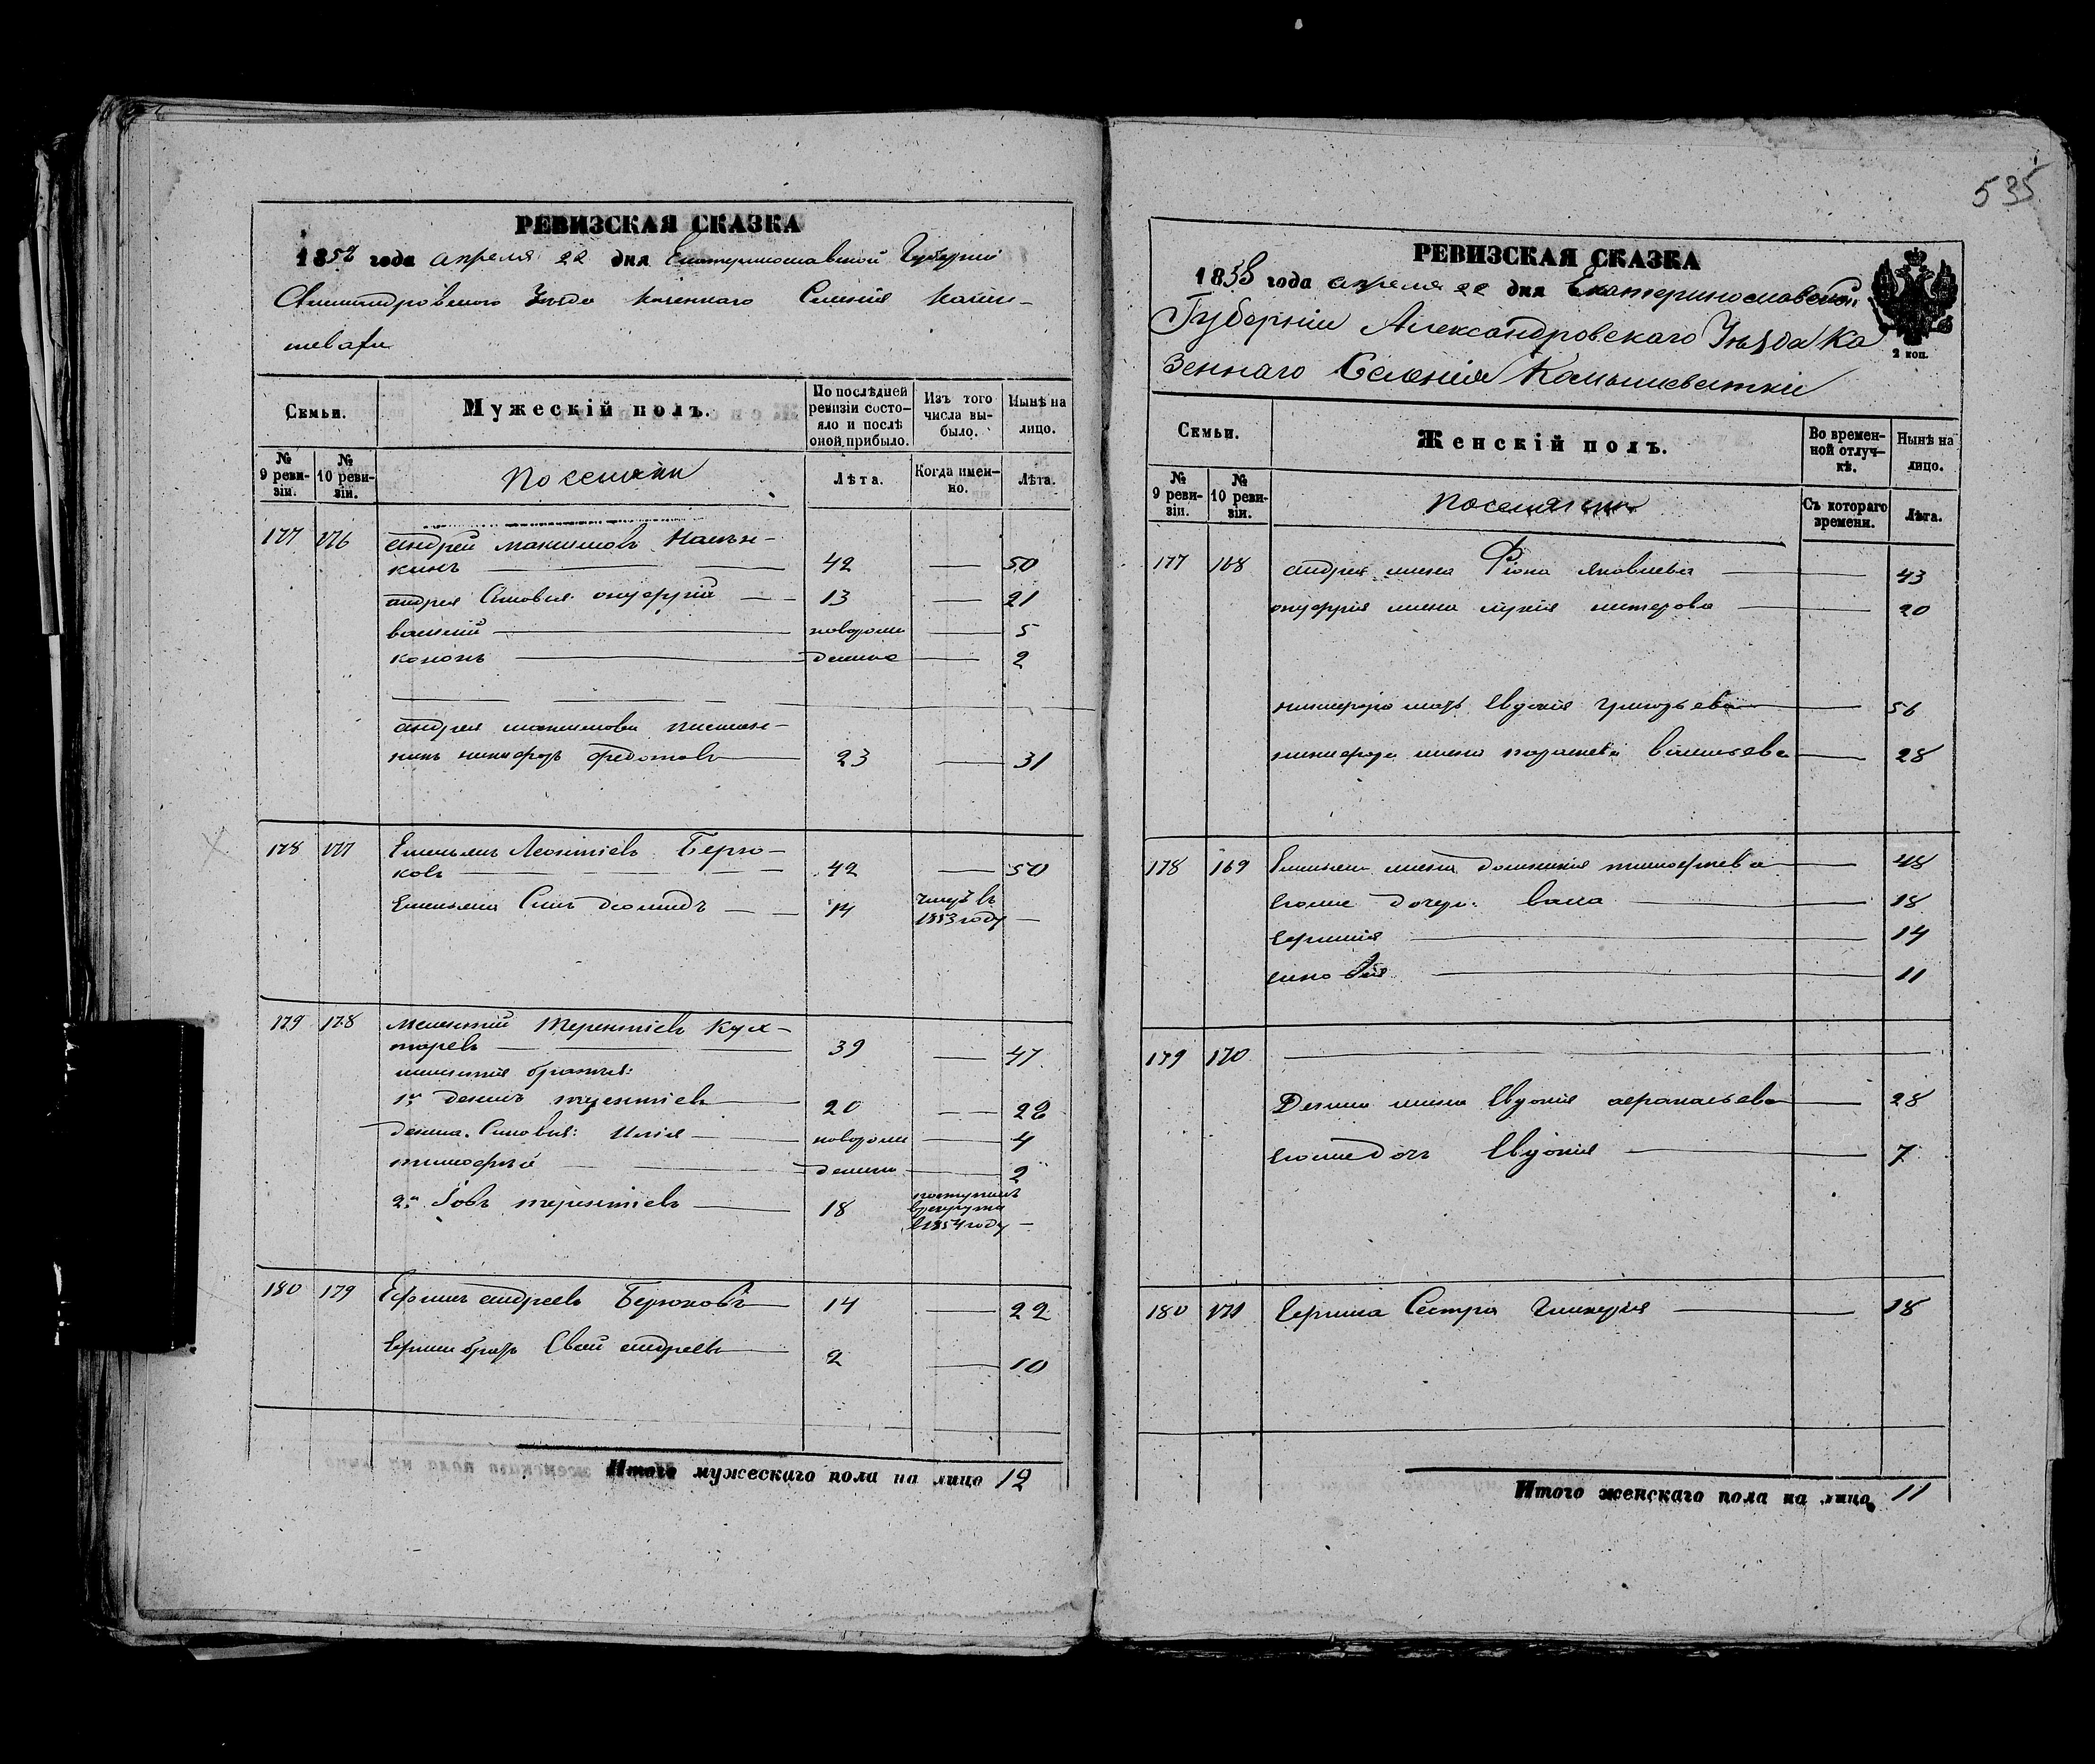 РЕВИЗСКАЯ СКАЗКА
1858 года апреля 22 дня Екатеринославской Губерніи
Александровскаго Уезда Казеннаго Селенія Камы-
шевахи
Семьи.
Мужескій полъ.
По послѣдней ревизіи состояло и послѣ оной прибыло.
Изъ того числа выбыло.
Нынѣ на лицо.
№ 9 ревизіи.
№ 10 ревизіи.
Поселяни
Лѣта.
Когда именно.
Лѣта.
177 176 андрей максимовъ
кинъ 42 — 50
андрея Сыновья онуфрій — 13 — 21
василий — новорож — 5
кононъ — денные — 2
андрея максимова племян-
никъ никифоръ федотовъ 23 — 31
178 177 Емельянъ Леонтіевъ Берю-
ковъ — 42 — 50
Емельяна Сынъ диомидъ — 14 — 1853 году —
179 178 мелентий терентіевъ Кух-
торевъ — 39 — 47
мелентия братья:
1й денисъ терентіевъ 20 — 28
дениса Сыновья: Илія — новорож — 4
тимофѣй — денные — 2
2й Іовъ терентіевъ — 18 — поступилъ в рекруты в 1854 году —
180 179 Ефимъ андреевъ Берюковъ — 14 — 22
Ефима братъ андреевъ — 2 — 10
Итого мужескаго пола на лицо 12
535
РЕВИЗСКАЯ СКАЗКА
1858 года апреля 22 дня Екатеринославской
Губерніи Александровскаго Уѣзда Ка
зеннаго Селенія Камышеватки
2 коп.
Семьи.
Женскій полъ.
Во временной отлучкѣ.
Нынѣ на лицо.
№ 9 ревизіи.
№ 10 ревизіи.
Съ котораго времени.
Лѣта.
177 168 андрея жена Яковлева — 43
онуфрія жена — 20
никифора мать Евдокія григорьева — 56
никифора жена васильева — 28
178 169 Емельяна жена домникия тимофеева — 48
Егоже дочери: васа — 18
— 14
— 11
179 170 —
Дениса жена Евдокія афанасьева — 28
Егоже дочь Евдокія — 7
180 171 Ефима Сестра гликерія — 18
Итого женскаго пола на лицо 11